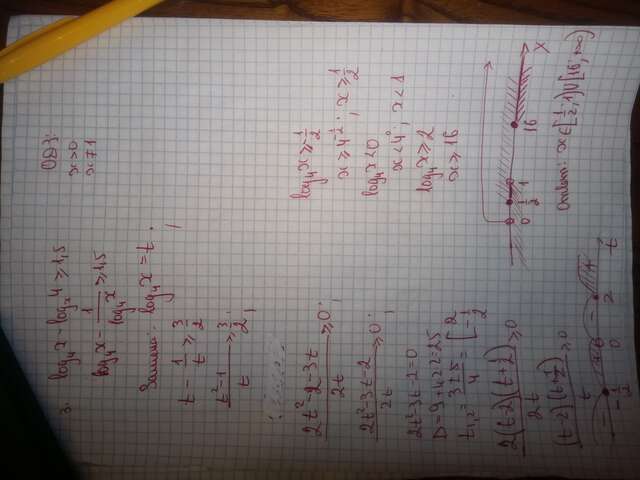 3. log₄x - logₓ4 ≥ 1,5
log₄x - 1/log₄x ≥ 1,5
Замена: log₄x = t.
t - 1/t ≥ 3/2 ;
(t² - 1)/t ≥ 3/2 ;
(2t² - 2 - 3t)/2t ≥ 0 ;
(2t² - 3t - 2)/2t ≥ 0 ;
2t² - 3t - 2 = 0
D = 9 + 4·2·2 = 25
t₁,₂ = (3 ± 5)/4 = [ 2
-1/2
2(t-2)(t+1/2)/2t ≥ 0
(t-2)(t+1/2)/t ≥ 0
- + - +
-1/2 0 2 t
ОДЗ:
x > 0
x ≠ 1
log₄x ≥ -1/2
x ≥ 4^(-1/2) ; x ≥ 1/2
log₄x < 0
x < 4⁰ ; x < 1
log₄x ≥ 2
x ≥ 16
0 1/2 1 16 x
Ответ: x ∈ [1/2; 1) ∪ [16; +∞)